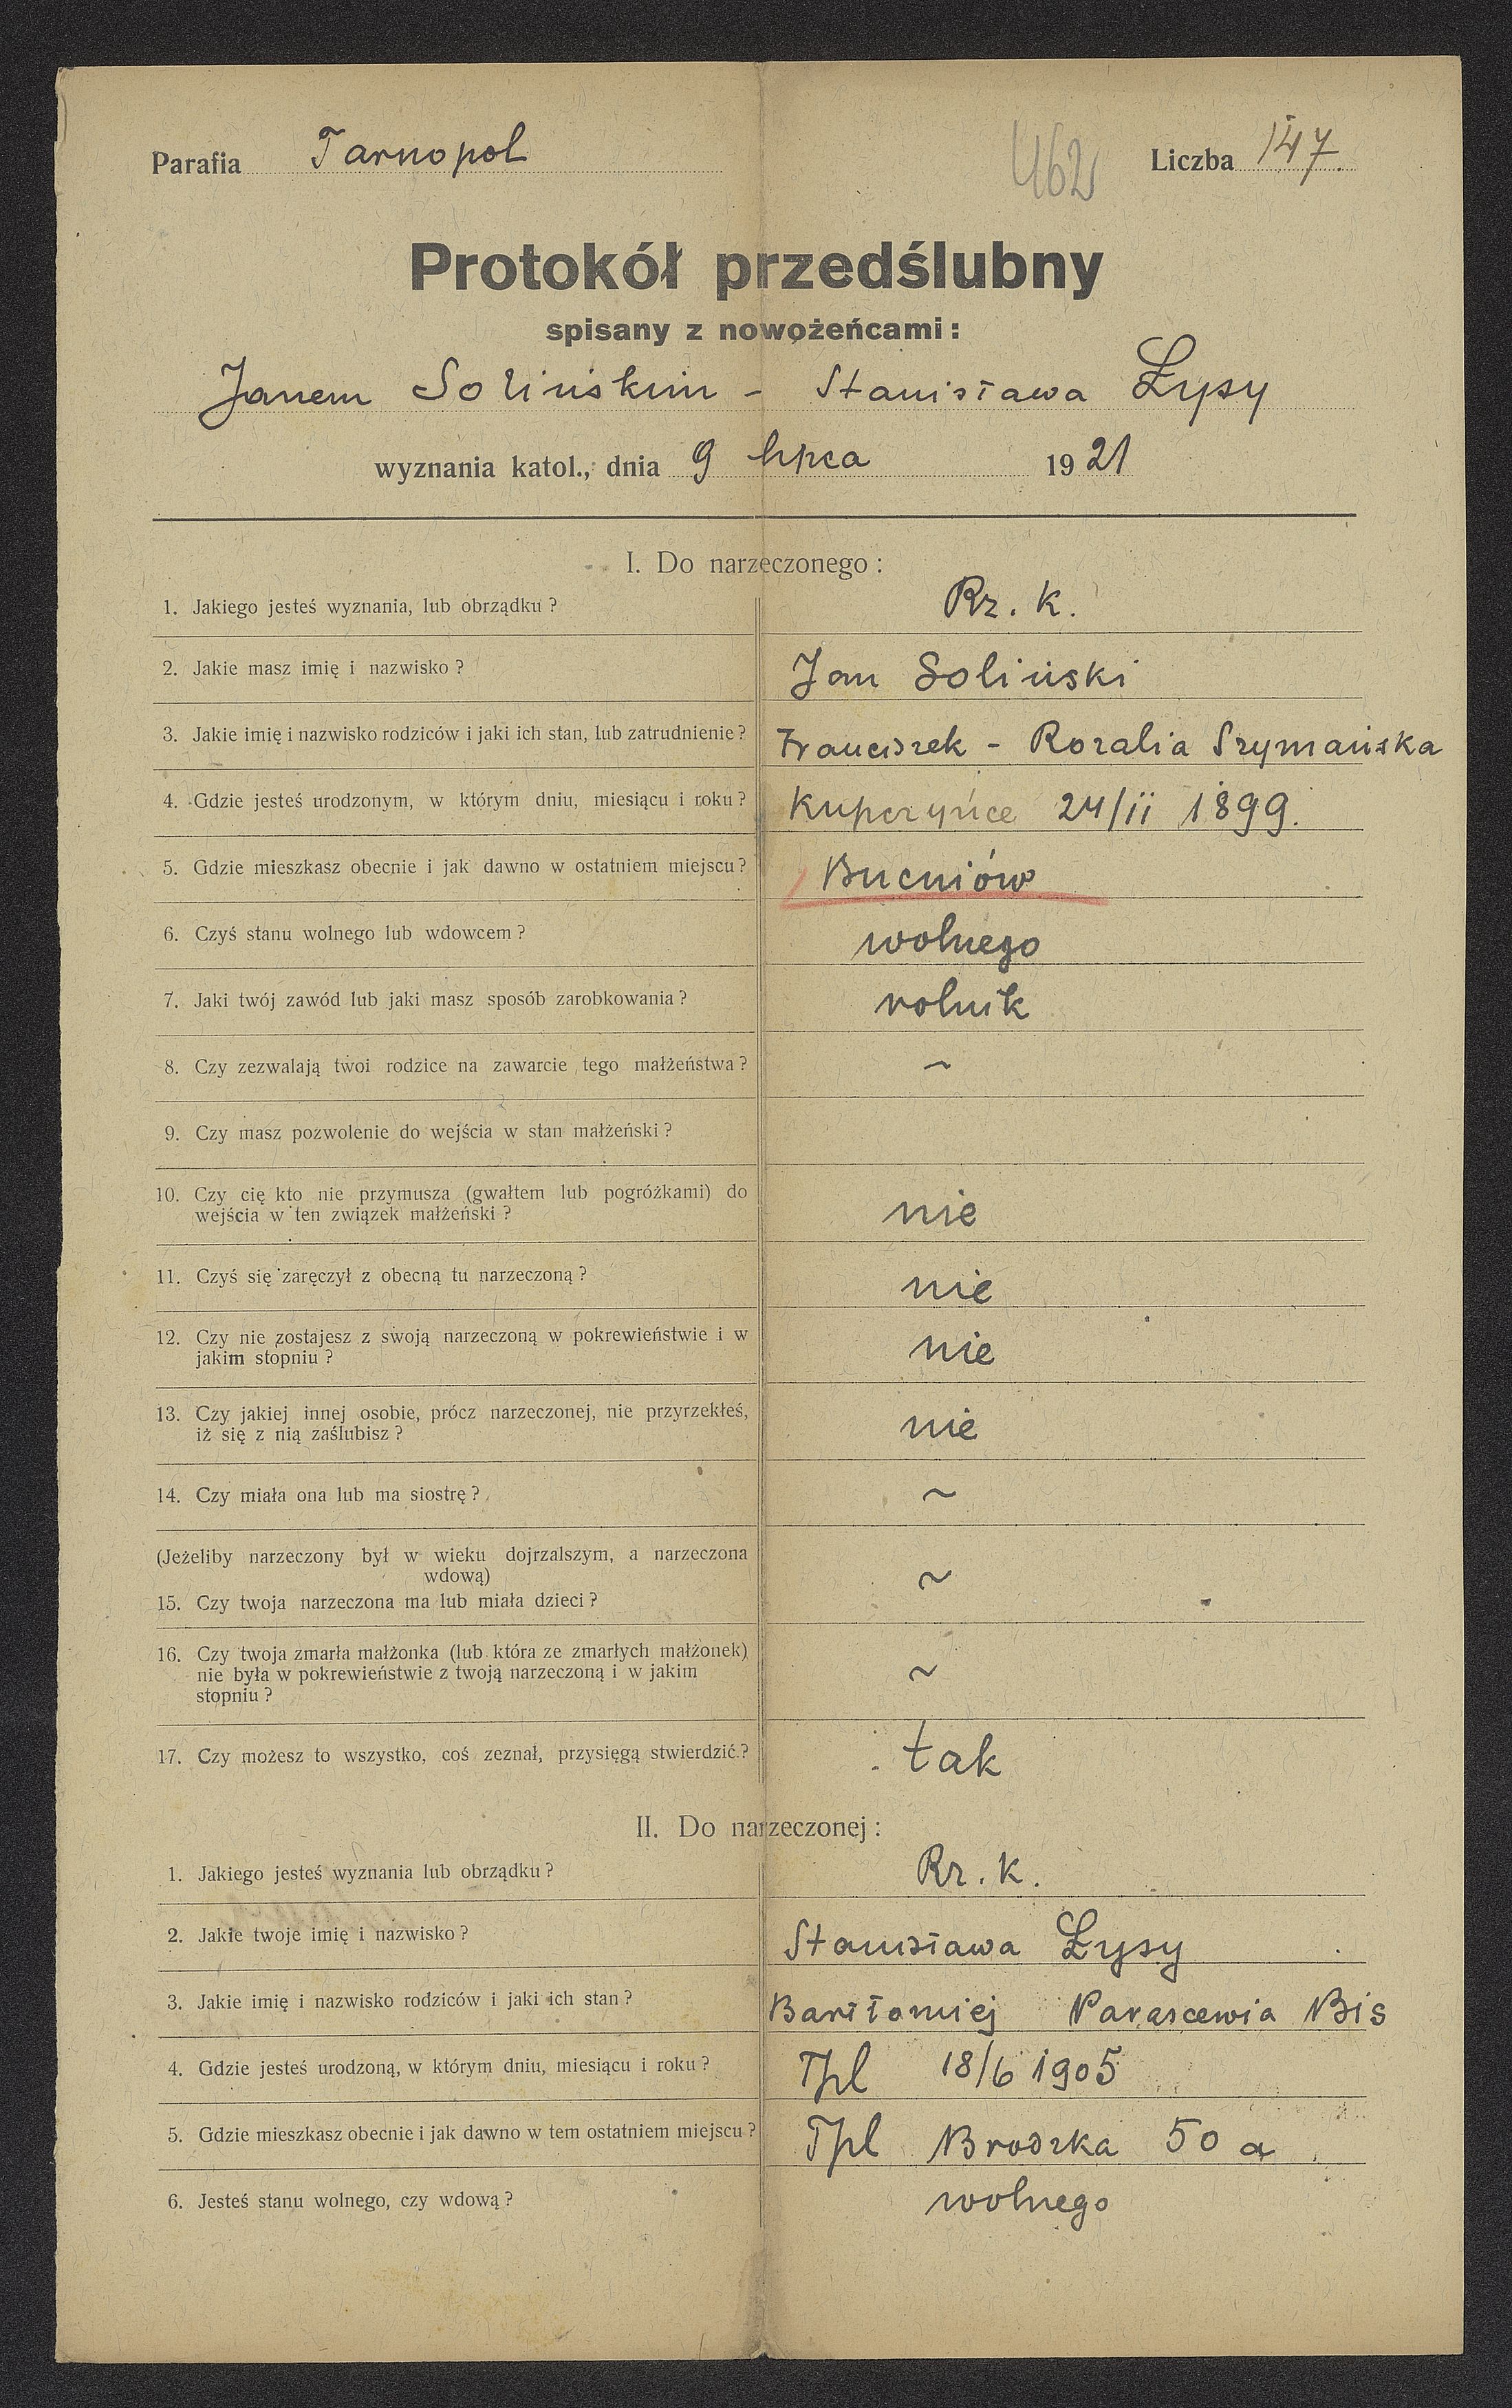 Parafia Tarnopol 462 Liczba 147.
Protokół przedślubny
spisany z nowożeńcami:
Janem Solińskim - Stanisława Łysy
wyznania katol., dnia 9 lipca 1921
I. Do narzeczonego:
1. Jakiego jesteś wyznania, lub obrządku? Rz. k.
2. Jakie masz imię i nazwisko? Jan Soliński
3. Jakie imię i nazwisko rodziców i jaki ich stan, lub zatrudnienie? Franciszek - Rozalia Szymańska
4. Gdzie jesteś urodzonym, w którym dniu, miesiącu i roku? Kupczyńce 24/II 1899.
5. Gdzie mieszkasz obecnie i jak dawno w ostatniem miejscu? Bucniów
6. Czyś stanu wolnego lub wdowcem? wolnego
7. Jaki twój zawód lub jaki masz sposób zarobkowania? rolnik
8. Czy zezwalają twoi rodzice na zawarcie tego małżeństwa? ~
9. Czy masz pozwolenie do wejścia w stan małżeński?
10. Czy cię kto nie przymusza (gwałtem lub pogróżkami) do
wejścia w ten związek małżeński? nie
11. Czyś się zaręczył z obecną tu narzeczoną? nie
12. Czy nie zostajesz z swoją narzeczoną w pokrewieństwie i w
jakim stopniu? nie
13. Czy jakiej innej osobie, prócz narzeczonej, nie przyrzekłeś,
iż się z nią zaślubisz? nie
14. Czy miała ona lub ma siostrę? ~
(Jeżeliby narzeczony był w wieku dojrzalszym, a narzeczona
wdową) ~
15. Czy twoja narzeczona ma lub miała dzieci?
16. Czy twoja zmarła małżonka (lub która ze zmarłych małżonek)
nie była w pokrewieństwie z twoją narzeczoną i w jakim ~
stopniu?
17. Czy możesz to wszystko, coś zeznał, przysięgą stwierdzić? tak
II. Do narzeczonej:
1. Jakiego jesteś wyznania lub obrządku? Rz. k.
2. Jakie twoje imię i nazwisko? Stanisława Łysy
3. Jakie imię i nazwisko rodziców i jaki ich stan? Bartłomiej Parascewia Bis
4. Gdzie jesteś urodzoną, w którym dniu, miesiącu i roku? Tpl 18/6 1905
5. Gdzie mieszkasz obecnie i jak dawno w tem ostatniem miejscu? Tpl Brodzka 50 a
6. Jesteś stanu wolnego, czy wdową? wolnego